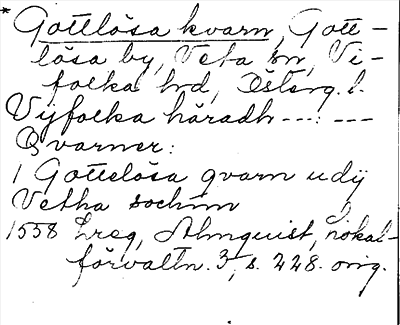 * Gottlösa kvarn, Gott-
lösa by, Veta sn, Vi-
folka hd, Österg. l.
Vijfolka häradh ---: ---
Qvarner:
1 Gottelösa qvarn udij
Vetha sochnn
1558 Lreg, Almquist, Lokal-
förvaltn. 3, s. 228. orig.